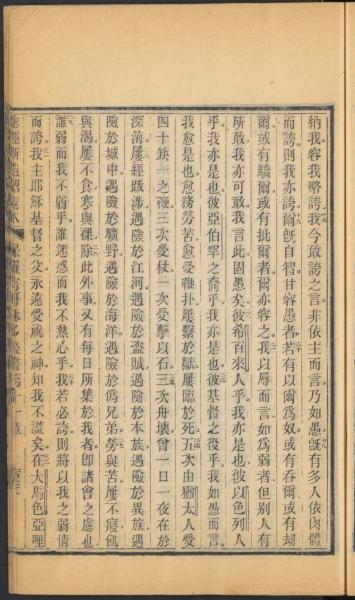 納我容我略誇我今敢誇之言非依主而言乃如愚旣有多人依肉體
而誇則我亦誇爾旣自智甘容愚者若有以爾爲奴或有吞爾或有刼
爾或有驕爾或有批爾者爾亦容之我以辱而言如爲弱者但別人有
所敢我亦可敢我言此固愚矣彼希百來人乎我亦是也彼以色列人
乎我亦是也彼亞伯罕之裔乎我亦是也彼基督之役乎我如愚而言
我愈是也愈務勞苦愈受鞭扑屢繫於獄屢臨於死五次由猶太人受
四十缺一之鞭三次受杖一次受擊以石三次舟壞曾一日一夜在於
深海屢經跋涉遇險於江河遇險於盜賊遇險於本族遇險於異族遇
險於城中遇險於曠野遇險於海洋遇險於僞兄弟勞與苦屢不寢飢
與渴屢不食寒與裸除此外事又有每日所集於我者卽諸會之慮也
誰弱而我不弱乎誰迷惑而我不熱心乎我若必誇則將以我之弱情
而誇我主耶穌基督之父永遠受祝之神知我不謊矣在大馬色亞哩